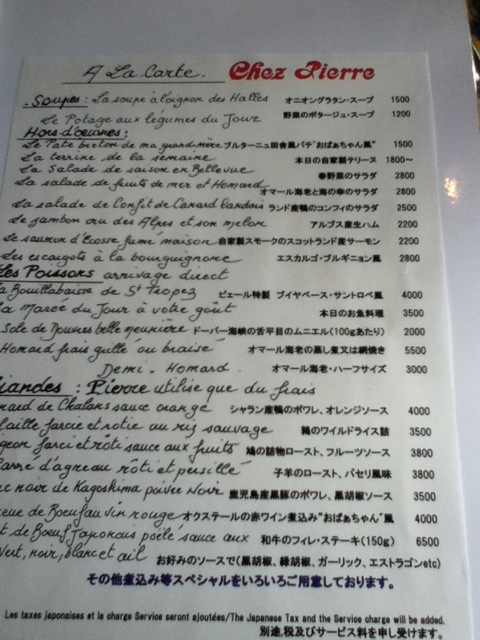 A La Carte. Chez Pierre
Soupes: La soupe à l'oignon des Halles オニオングラタン・スープ 1500
Le Potage aux légumes du Jour 野菜のポタージュ・スープ 1200
Hors-d'œuvres:
Le Pâté breton de ma grand-mère ブルターニュ田舎風パテ"おばぁちゃん風" 1500
La terrine de la semaine 本日の自家製テリーヌ 1800~
La Salade de saison en Bellevue 春野菜のサラダ 2800
La salade de fruits de mer et Homard オマール海老と海の幸のサラダ 2800
La salade de Confit de Canard landais ランド産鴨のコンフィのサラダ 2500
Le jambon cru des Alpes et son melon アルプス産生ハム 2200
Le saumon d'Ecosse fumé maison 自家製スモークのスコットランド産サーモン 2200
Les escargots à la bourguignonne エスカルゴ・ブルギニョン風 2800
Les Poissons arrivage direct
La Bouillabaisse de St Tropez ピエール特製 ブイヤベース・サントロペ風 4000
La Marée du Jour à votre goût 本日のお魚料理 3500
Sole de Douvres belle meunière ドーバー海峡の舌平目のムニエル(100gあたり) 2000
Homard frais grillé ou braisé オマール海老の蒸し煮又は網焼き 5500
Demi - Homard オマール海老・ハーフサイズ 3000
iandes : Pierre utilise que du frais
nard de Chalans sauce orange シャラン産鴨のポワレ、オレンジソース 4000
aille farcie et rôtie au riz sauvage 鶉のワイルドライス詰 3500
geon farci et rôti sauce aux fruits 鳩の詰物ロースト、フルーツソース 3800
arré d'agneau rôti et persillé 子羊のロースト、パセリ風味 3800
rc noir de Kagoshima poivre Noir 鹿児島産黒豚のポワレ、黒胡椒ソース 3500
ueue de Boeuf au vin rouge オクステールの赤ワイン煮込み"おばぁちゃん"風 4000
t de Boeuf Japonais poêlé sauce aux 和牛のフィレ・ステーキ(150g) 6500
Vert, noir, blanc et ail お好みのソースで(黒胡椒、緑胡椒、ガーリック、エストラゴンetc)
その他煮込み等スペシャルをいろいろご用意しております。
Les taxes japonaises et la charge Service seront ajoutées/The Japanese Tax and the Service charge will be added.
別途,税及びサービス料を申し受けます。